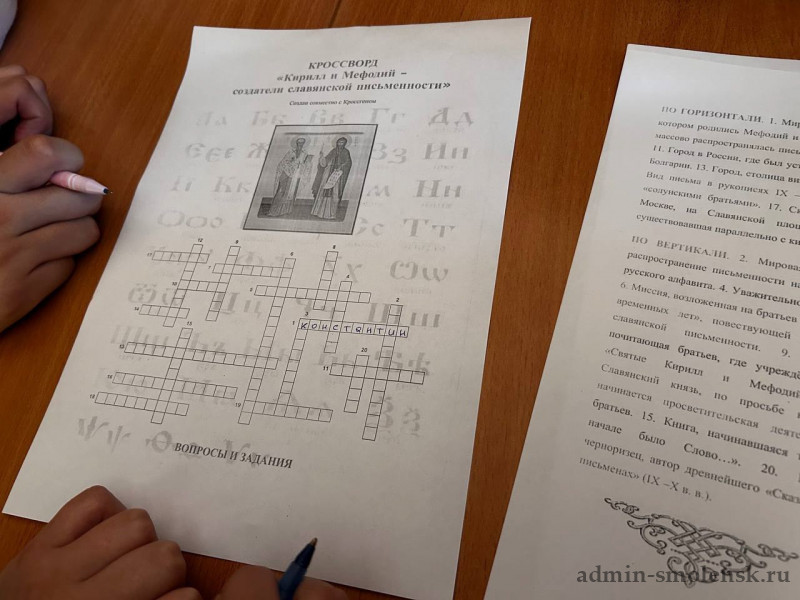 КРОССВОРД
«Кирилл и Мефодий –
создатели славянской письменности»
Создан совместно с
КОНСТАНТИН
ВОПРОСЫ И ЗАДАНИЯ
ПО ГОРИЗОНТАЛИ. 1. Мир
котором родились Мефодий и
массово распространялась пись
11. Город в России, где был ус
Болгарии. 13. Город, столица ви
Вид письма в рукописях IX –
«солунскими братьями». 17. С
Москве, на Славянской площ
существовавшая параллельно с ки
ПО ВЕРТИКАЛИ. 2. Мирова
распространение письменности на
русского алфавита. 4. Уважительно
6. Миссия, возложенная на братьев
временных лет», повествующей
славянской письменности. 9.
почитающая братьев, где учреждё
«Святые Кирилл и Мефодий
Славянский князь, по просьбе
начинается просветительская деяте
братьев. 15. Книга, начинавшаяся
начале было Слово…». 20.
черноризец, автор древнейшего «Сказ
письменах» (IX –X в. в.).
admin-smolensk.ru